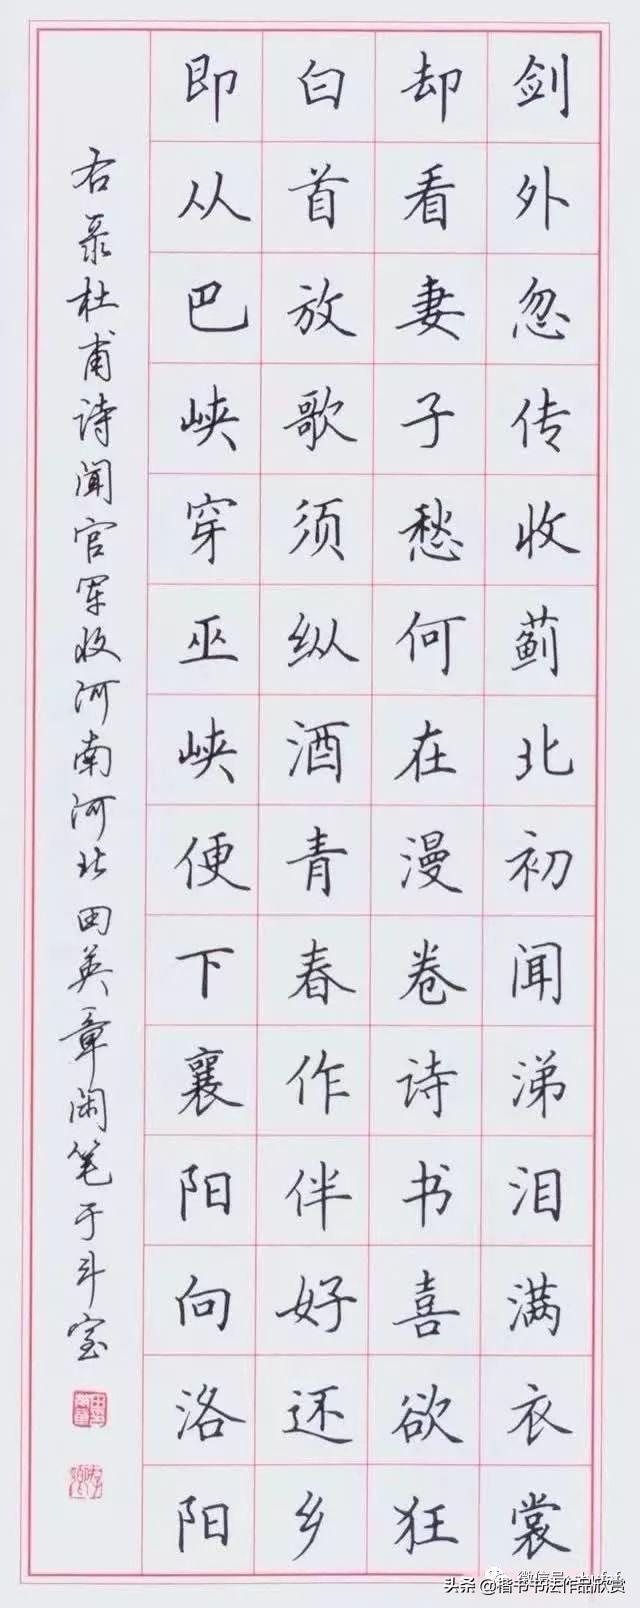 剑外忽传收蓟北初闻涕泪满衣裳
却看妻子愁何在漫卷诗书喜欲狂
白首放歌须纵酒青春作伴好还乡
即从巴峡穿巫峡便下襄阳向洛阳
右录杜甫诗闻官军收河南河北田英章闲笔于斗室
微信号
头条@楷书书法作品欣赏